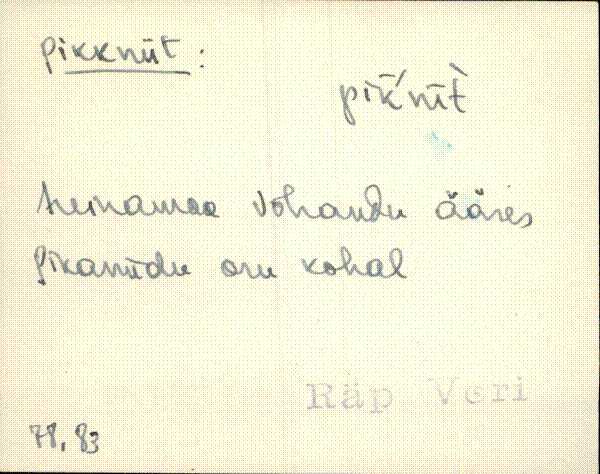 pikkniit:
pik̄'nīt̀
heinamaa Võhandu ääres
Pikaniidu oru kohal
Räp Veri
78, 83